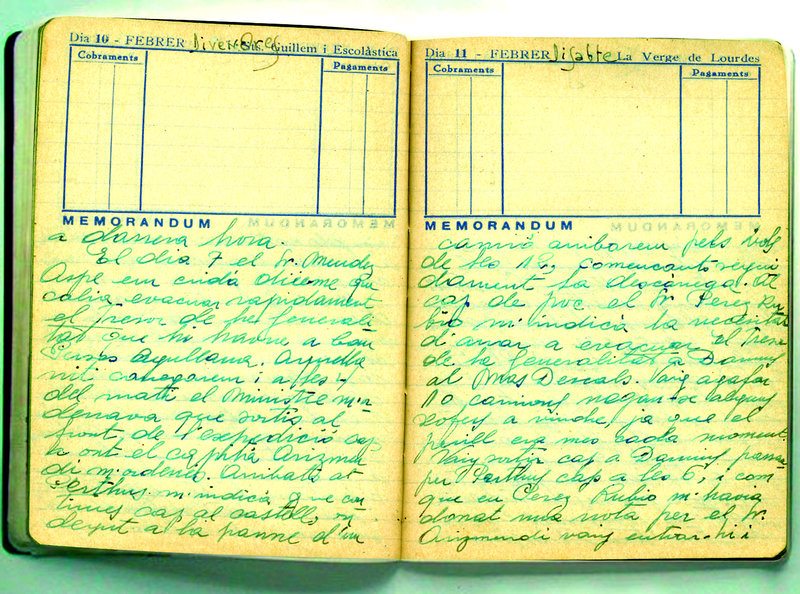 Dia 10 - FEBRER divendres St. Guillem i Escolàstica
Cobraments
Pagaments
MEMORANDUM
a darrera hora.
El dia 7 el Sr. Mendez
Aspe em crida dient-me que
calia evacuar rapidament
el tresor de la Generali
tat que hi havia a Can
Perxes Agullana. Aquella
nit carregarem i a les 4
del matí el Ministre m'or
denava que sortís al
front de l'expedició cap
a ont el capità Arizmen
di m'ordenà. Arribats al
Perthus m'indicà que con
tinues cap al castell,
degut a la panne d'un
Dia 11 - FEBRER Disabte La Verge de Lourdes
Cobraments
Pagaments
MEMORANDUM
camió arribarem pels vols
de les 12, començant segui
dament la descarrega. Al
cap de poc el Sr Perez Ru
bio m'indicà la necesitat
d'anar a evacuar el tresor
de la Generalitat a Darnius
al Mas Descals. Vaig agafar
10 camions negan-se alguns
xofers a vindre, ja que el
perill era mes cada moment.
Vaig sortir cap a Darnius passan
per Perthus cap a les 6, i com
que en Perez Rubio m'havia
donat una nota per el Sr.
Arizmendi vaig entrar-hi i